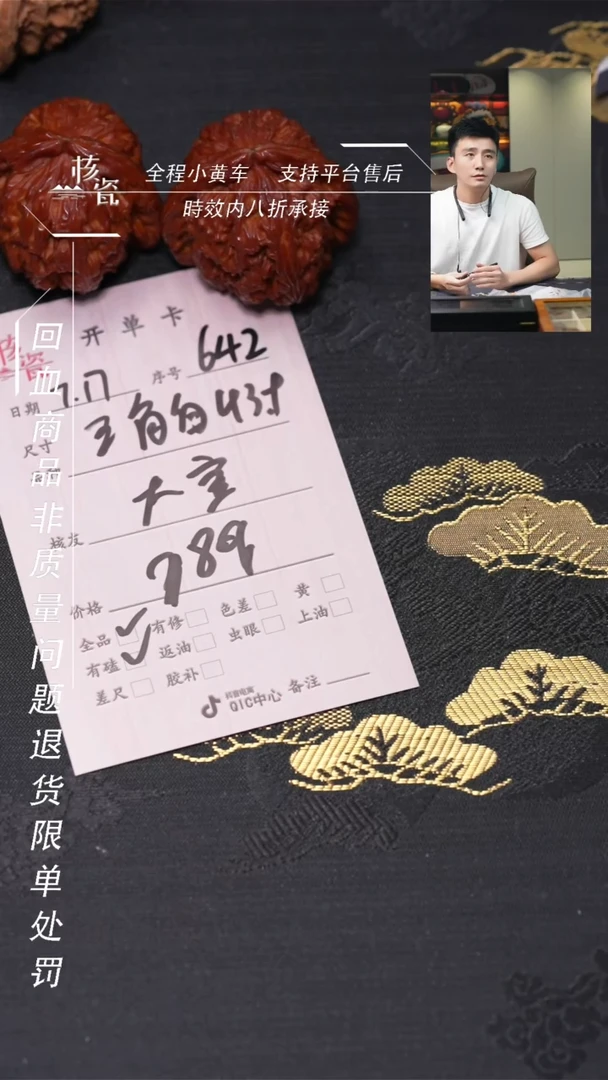 核瓷
全程小黄车 支持平台售后
時效内八折承接
回血商品非质量问题退货限单处罚
核瓷
开单卡
日期 7.17 序号 642
尺寸
核友
大宝
价格 789
全品 ✓ 有修 色差 黄
有磕 ✓ 返油 虫眼 上油
差尺 胶补
抖音电商
QIC中心 备注